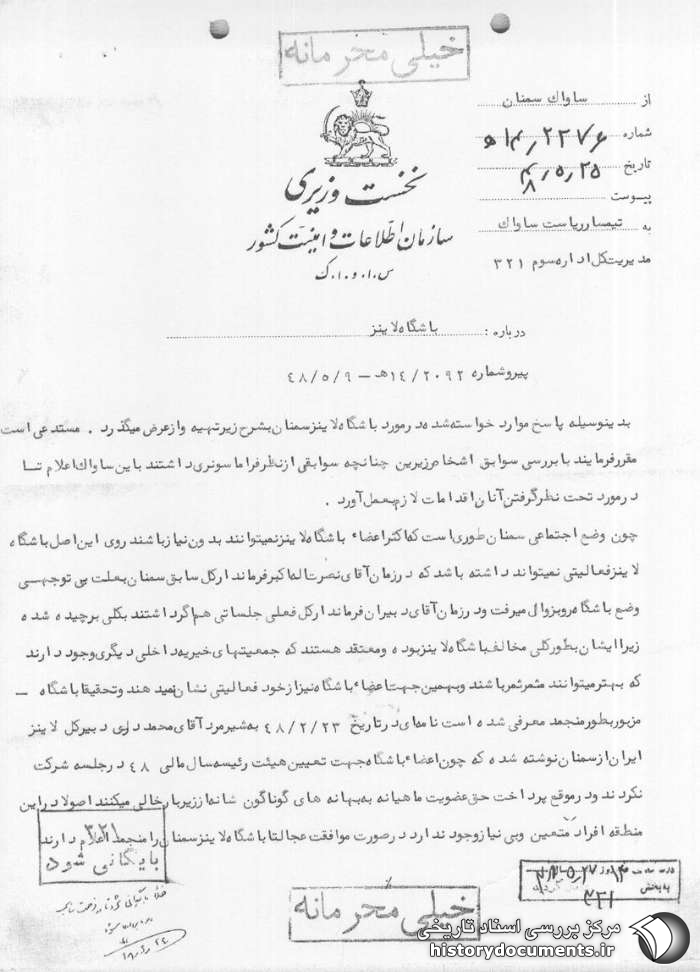 خیلی محرمانه
از ساواك سمنان
شماره ۲۲۷۶/۱۴ﻫ
تاریخ ۴۸/۵/۲۵
پیوست
به تیمسار ریاست ساواك
مدیریت کل اداره سوم ۳۲۱
نخست وزیری
سازمان اطلاعات و امنیت کشور
س.ا.و.ا.ک
درباره: باشگاه لاینز
پیرو شماره ۲۰۹۲/۱۴ﻫ – ۴۸/۵/۹
بدینوسیله پاسخ موارد خواسته شده در مورد باشگاه لاینز سمنان بشرح زیر تهیه و از عرض میگذرد . مستدعی است
مقرر فرمایند با بررسی سوابق اشخاص زیرین چنانچه سوابقی از نظر فراماسونری داشتند باین ساواك اعلام تا
در مورد تحت نظر گرفتن آنان اقدامات لازم بعمل آورد .
چون وضع اجتماعی سمنان طوری است که اکثر اعضاء باشگاه لاینز نمیتوانند بدون نیاز باشند روی این اصل باشگاه
لاینز فعالیتی نمیتواند داشته باشد که در زمان آقای نصرت اله اکبر فرماندار کل سابق سمنان بعلت بی توجهی
وضع باشگاه رو بزوال میرفت و در زمان آقای دبیران فرماندار کل فعلی جلساتی هم اگر داشتند بکلی برچیده شده
زیرا ایشان بطور کلی مخالف باشگاه لاینز بوده و معتقد هستند که جمعیتهای خیریه داخلی دیگری وجود دارند
که بهتر میتوانند مثمر ثمر باشند و بهمین جهت اعضاء باشگاه نیز از خود فعالیتی نشان نمیدهند و تحقیقا باشگاه –
مزبور بطور منجمد معرفی شده است نامه ای در تاریخ ۴۸/۲/۲۳ به شیر مرد آقای محمد دری دبیر کل لاینز
ایران از سمنان نوشته شده که چون اعضاء باشگاه جهت تعیین هیئت رئیسه سال مالی ۴۸ در جلسه شرکت
نکردند و در موقع پرداخت حق عضویت ماهیانه به بهانه های گوناگون شانه از زیر بار خالی میکنند اصولا در این
منطقه افراد متعین و بی نیاز وجود ندارد در صورت موافقت عجالتا باشگاه لاینز سمنان را منجمد اعلام دارند
۳۲۱
بایگانی شود
خیلی محرمانه
۳۲۱
مرکز بررسی اسناد تاریخی
historydocuments.ir